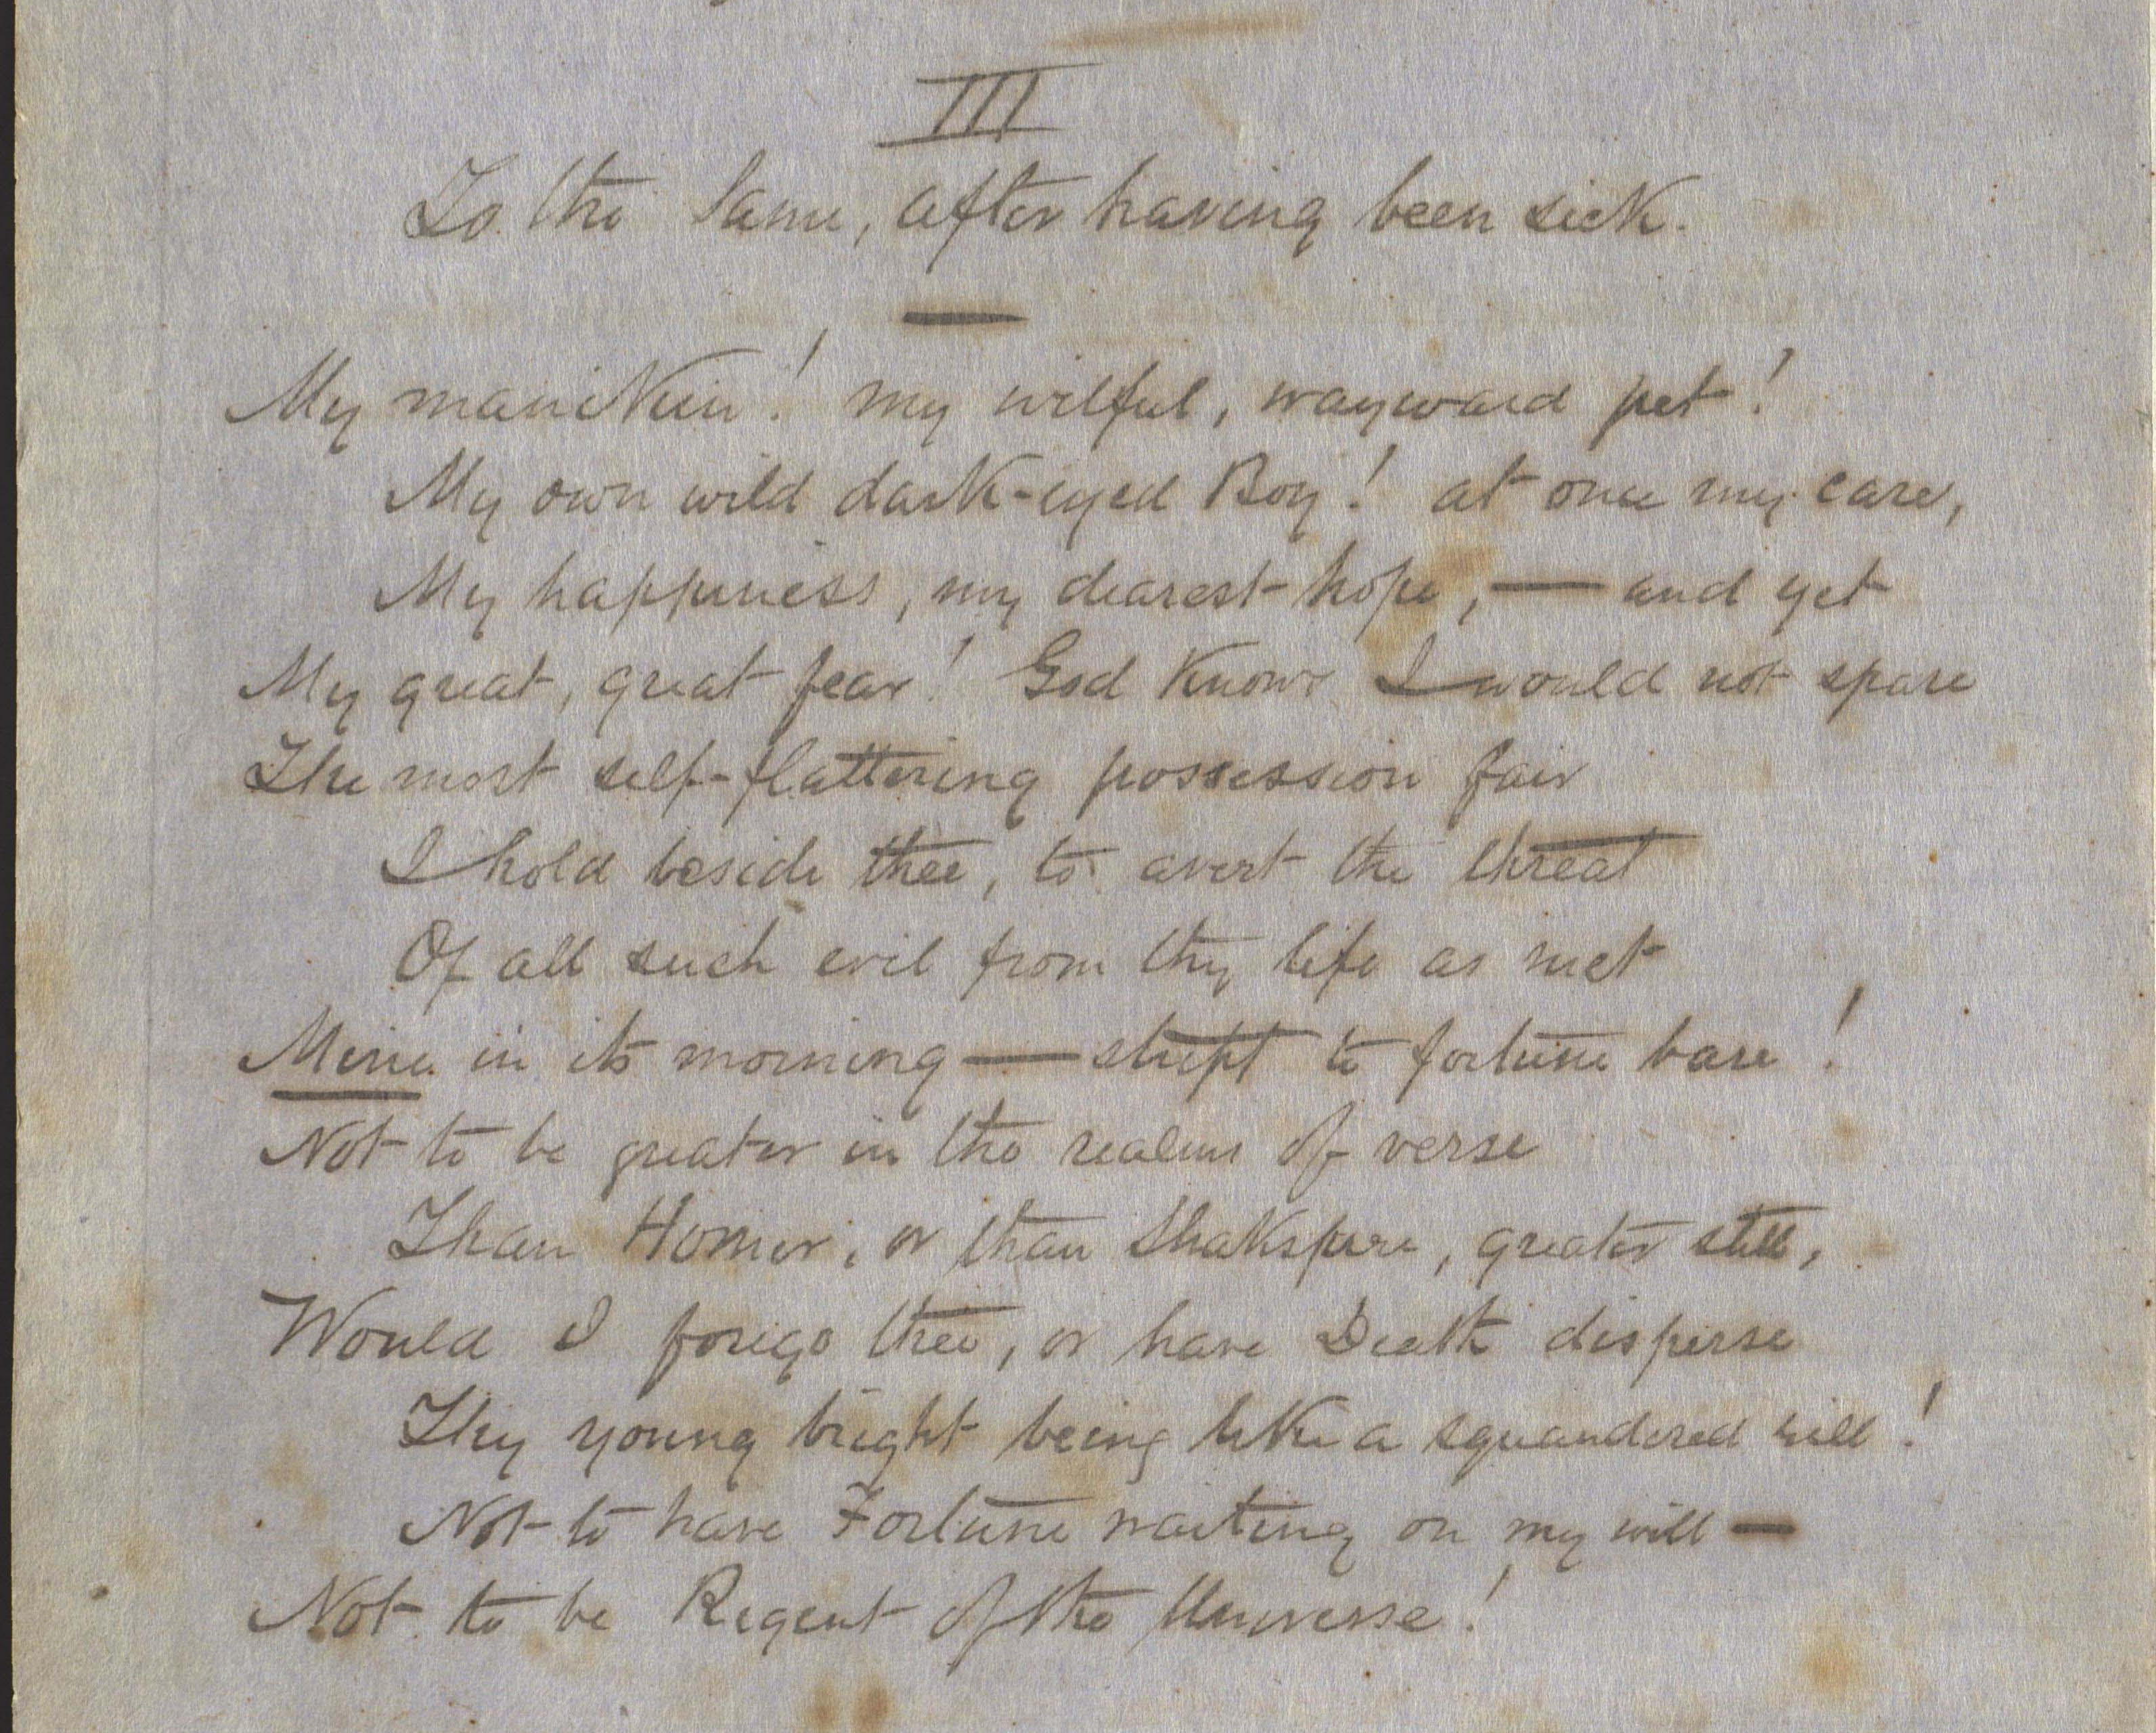 III
To the Same, after having been sick.
My manikin! my wilful, wayward pet!
My own wild dark-eyed Boy! at once my care,
My happiness, my dearest hope, — and yet
My great, great fear! God knows I would not spare
The most self-flattering possession fair
I hold beside thee, to avert the threat
Of all such evil from thy life as met
Mine in its morning — stript to fortune bare!
Not to be greater in the realm of verse
Than Homer, or than Shakspere, greater still,
Would I forego thee, or have Death disperse
Thy young bright being like a squandered rill!
Not to have Fortune waiting on my will —
Not to be Regent of the Universe!